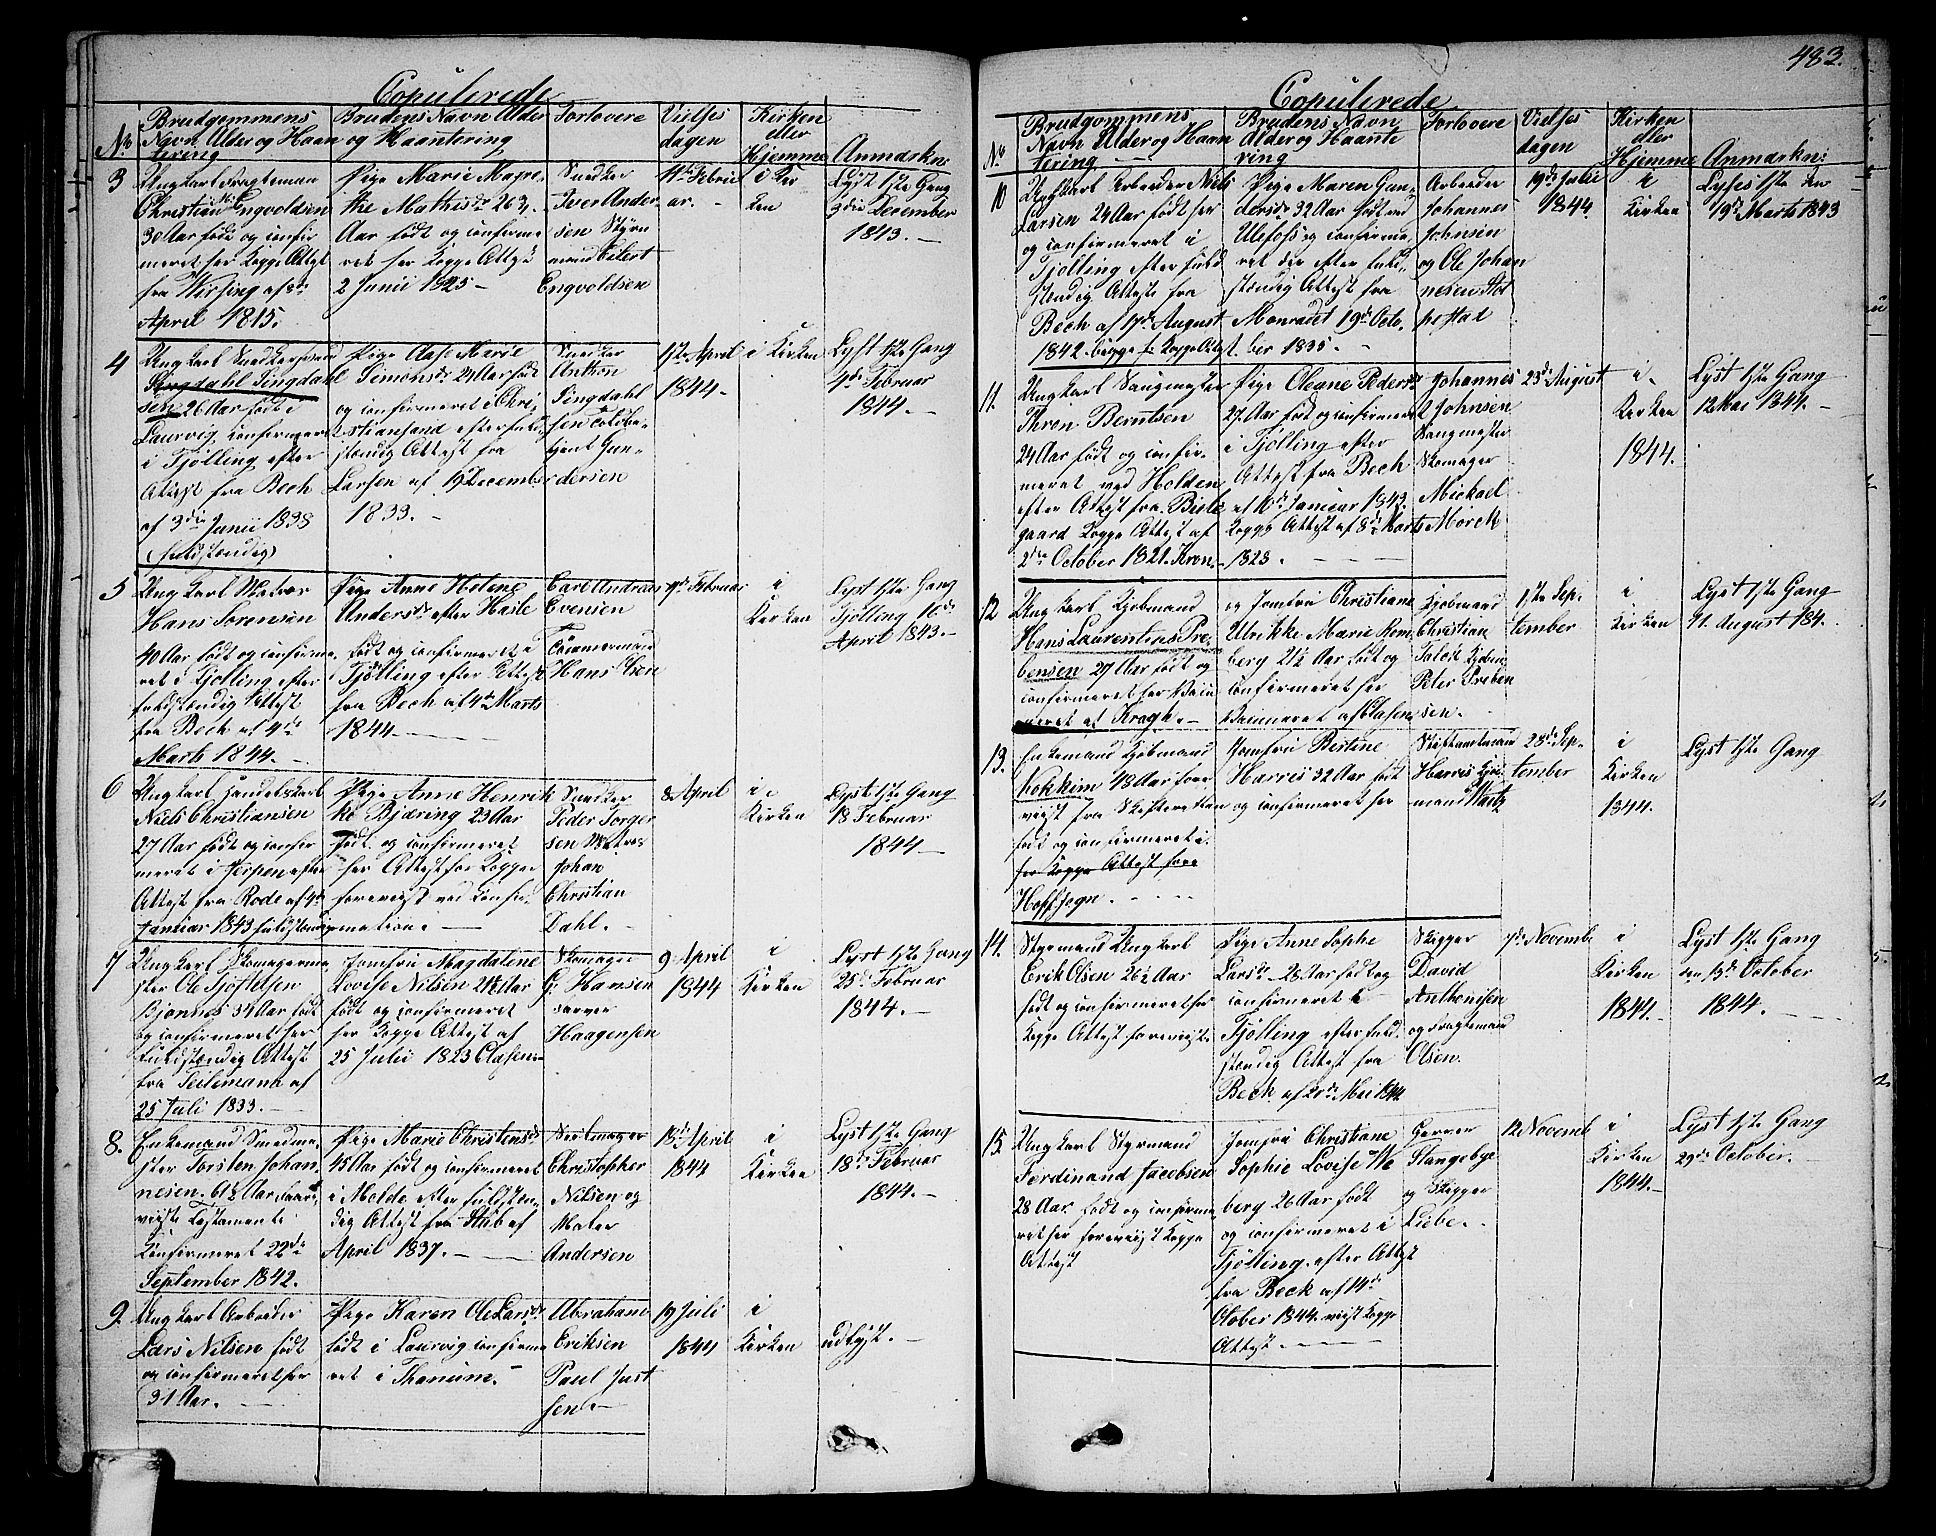 483.
Copulerede
No
Brudgommens
Navn Alder og Haan
tering
Brudens Navn Alder
og Haantering
Forlovere
Vielses
dagen
Kirken
eller
Hjemme
Anmærkn:
3
Ungkarl Fragtemand
Christian Engvoldsen
30 Aar født og confir
meret her Kopge Attest
fra Wirsing af 8de
April 1815.
Pige Marie Magre
the Mathisdr 26 3/4
Aar født og confirme
ret her Kopge Attest
2 Junii 1825 -
Snedker
Iver Ander
sen Styr
mand Eilert
Engvoldsen
11te Febru
ar. -
i Kir
ken
Lyst 1ste Gang
3die December
1843. -
4
Ungkarl Snedkersvend
Singdahl Singdahl
sen 26 Aar født i
Laurvig, confirmeret
i Tjølling efter
Attest fra Bech
af 3die Junii 1838
(fuldstændig)
Pige Aase Marie
Simonsdr 24 Aar født
og confirmeret i Chri
stiansand efter fuld
stændig Attest fra
Larsen af 19 December
1833. -
Snedker
Anthon
Singdahl
sen
tjent Gun
dersen
1ste April
1844 -
i Kirken
Lyst 1ste Gang
4de Februar
1844. -
5
Ungkarl Matros
Hans Sørensen
40 Aar født og confirme
ret i Tjølling efter
fuldstændig Attest
fra Bech af 4de
Marts 1844. -
Pige Anne Helene
Andersdr
født og confirmeret i
Tjølling efter Attest
fra Bech af 4de Marts
1844. -
Carl Andreas
Evensen
Tømmermand
Hans
Februar
i
Kirken
Lyst 1ste Gang
Tjølling 16de
April 1843. -
6
Ungkarl Handelskarl
Niels Christiansen
27 Aar født og confir
meret i Jerpen efter
Attest fra Rode af 4de
Januar 1843 fuldstændig
Pige Anne Henrik
ke Bjæring 23 Aar
født og confirmeret
her Attest for Kopper
foreviist ved Confir
mation. -
Snedker
Peder Torger
sen Matros
Johan
Christian
Dahl. -
8 April
i
Kirken
Lyst 1ste Gang
18 Februar
1844 -
7
Ungkarl Skomagerme
ster Ole Tjøstelsen
Bjønnes 34 Aar født
og confirmeret her
fuldstændig Attest
fra Teilemann af
25 Juli 1833. -
Jomfru Magdalene
Lovise Nilsen 24½ Aar
født og confirmeret
her Kopge Attest af
25 Julii 1823 Clasen
Skomager
G. Hansen
Farver
Haagensen
9 April
1844
i
Kirken
Lyst 1ste Gang
25de Februar
1844. -
8.
Enkemand Smedme
ster Torsten Johan
nesen. 61½ Aar,
viiste Testamente
Confirmeret 22de
September 1842.
Pige Marie Christensdr
45 Aar født og confirmeret
i Molde efter fuldstæn
dig Attest fra Stub af
April 1837. -
Seilmager
Christopher
Nilsen og
Maler
Andersen
18de April
1844
i
Kirken
Lyst 1ste Gang
18de Februar
1844. -
9.
Ungkarl Arbeider
Lars Nilsen født
og confirmeret her
31 Aar. -
Pige Karen Ole Larsdr
født i Laurvig confirme
ret i Thanum. -
Abraham
Eriksen
Paul Just
sen. -
19 Juli
1844
i
Kirken
udlyst. -
Copulerede
No
Brudgommens
Navn Alder og Haan
tering
Brudens Navn
Alder og Haante
ring
Forlovere
Vielses
dagen
Kirken
eller
Hjemme
Anmærkn:
10
Ungkarl Arbeider Niels
Larsen 24 Aar født her
og confirmeret i
Tjølling efter fuld
stændig Attest fra
Bech af 17de August
1842. begge f. Kopge Attest.
Pige Maren Gun
dersdr 32 Aar født ved
Ulefoss og confirme
ret der efter fuld
stændig Attest fra
Monradet 19de Octo
ber 1835. -
Arbeider
Johannes
Johnsen
og Ole Johan
nesen
19de Julii
1844
i
Kirken
Lyses 1ste den
19de Marts 1843
11.
Ungkarl Saugmester
Thron Berntsen
24 Aar født og confir
meret ved Holden
efter Attest fra
gaard Kopge Attest af
2den October 1821. Kron. -
Pige Oleane Pedersdr
27. Aar født og confirmeret
i Tjølling efter
Attest fra Bech
af 10de Januar 1843.
Kopge Attest af 8de Marts
1828 -
Johannes
Johnsen
Saugmester
Skomager
Mickael
Mørch
23de August
i
Kirken
1844.
Lyst 1ste Gang
12 Mai 1844. -
12
Ungkarl Kjøbmand
Hans Laurentius Pre
bensen 27 Aar født og
confirmeret her Vacci
neret af Kragh. -
og Jomfru Christiane
Ulrikke Marie Rom
berg 21½ Aar født og
confirmeret her
Vaccineret af Clasen
Kjøbmand
Christian
Falck Kjøbm:
Peter Preben
sen.
1ste Sep
tember
i
Kirken
Lyst 1ste Gang
11. August 184.
13.
Enkemand Kjøbmand
Kokkim 48 Aar fore
viist fra Skifteretten
født og confirmeret i
for Kopge Attest fore
Hoffsogn. - - - -
Jomfru Bertine
Harries 32 Aar født
og confirmeret her
Stiftamtmand
Harries Kjøb
mand Wartz
28de Sep
tember
i
Kirken
1844.
Lyst 1ste Gang
14.
Styrmand Ungkarl
Erik Olsen 26½ Aar
født og confirmeret her
Kopge Attest foreviist.
Pige Anne Sophe
Larsdr - 28 Aar født og
confirmeret i
Tjølling efter fuld
stændig Attest fra
Bech af 20de Mai 1844
Skipper
David
Anthonisen
og Fragtemand
Olsen.
7de Novembe
i
Kirken
1844. -
Lyst 1ste Gang
den 13de October
1844. -
15.
Ungkarl Styrmand
Ferdinand Jacobsen
28 Aar. født og confirme
ret her foreviist Kopge
Attest
Jomfru Christiane
Sophie Lovise We
berg 26 Aar født
og confirmeret i
Tjølling. efter Attest
fra Bech af 14de
October 1844. viist Kopge
Attest. -
Garver
Stangebye
og Skipper
Liebe. -
12 Novemb
i
Kirken
1844. -
Lyst 1ste Gang
29de October. -